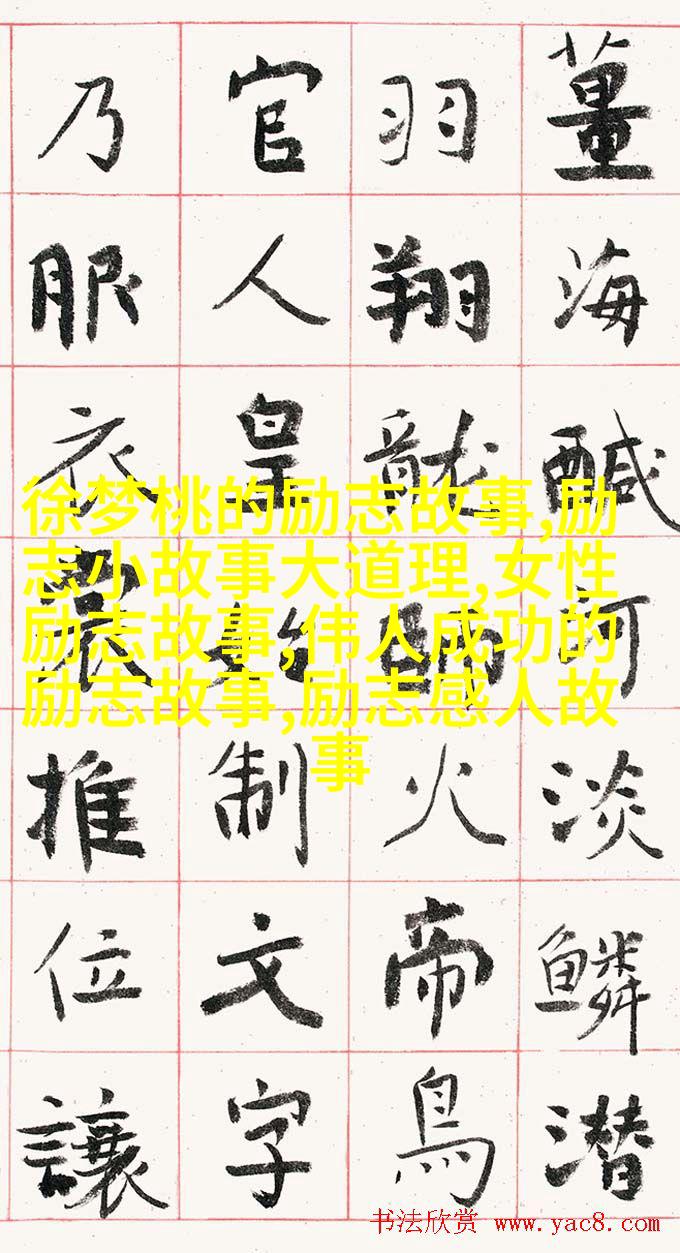 薑海醎河淡鱗潜
羽翔龍師火帝鳥
官人皇始制文字
乃服衣裳推位讓
徐梦桃的励志故事,励
志小故事大道理,女性
励志故事,伟人成功的
励志故事,励志感人故
事
书法欣赏 www.yac8.com